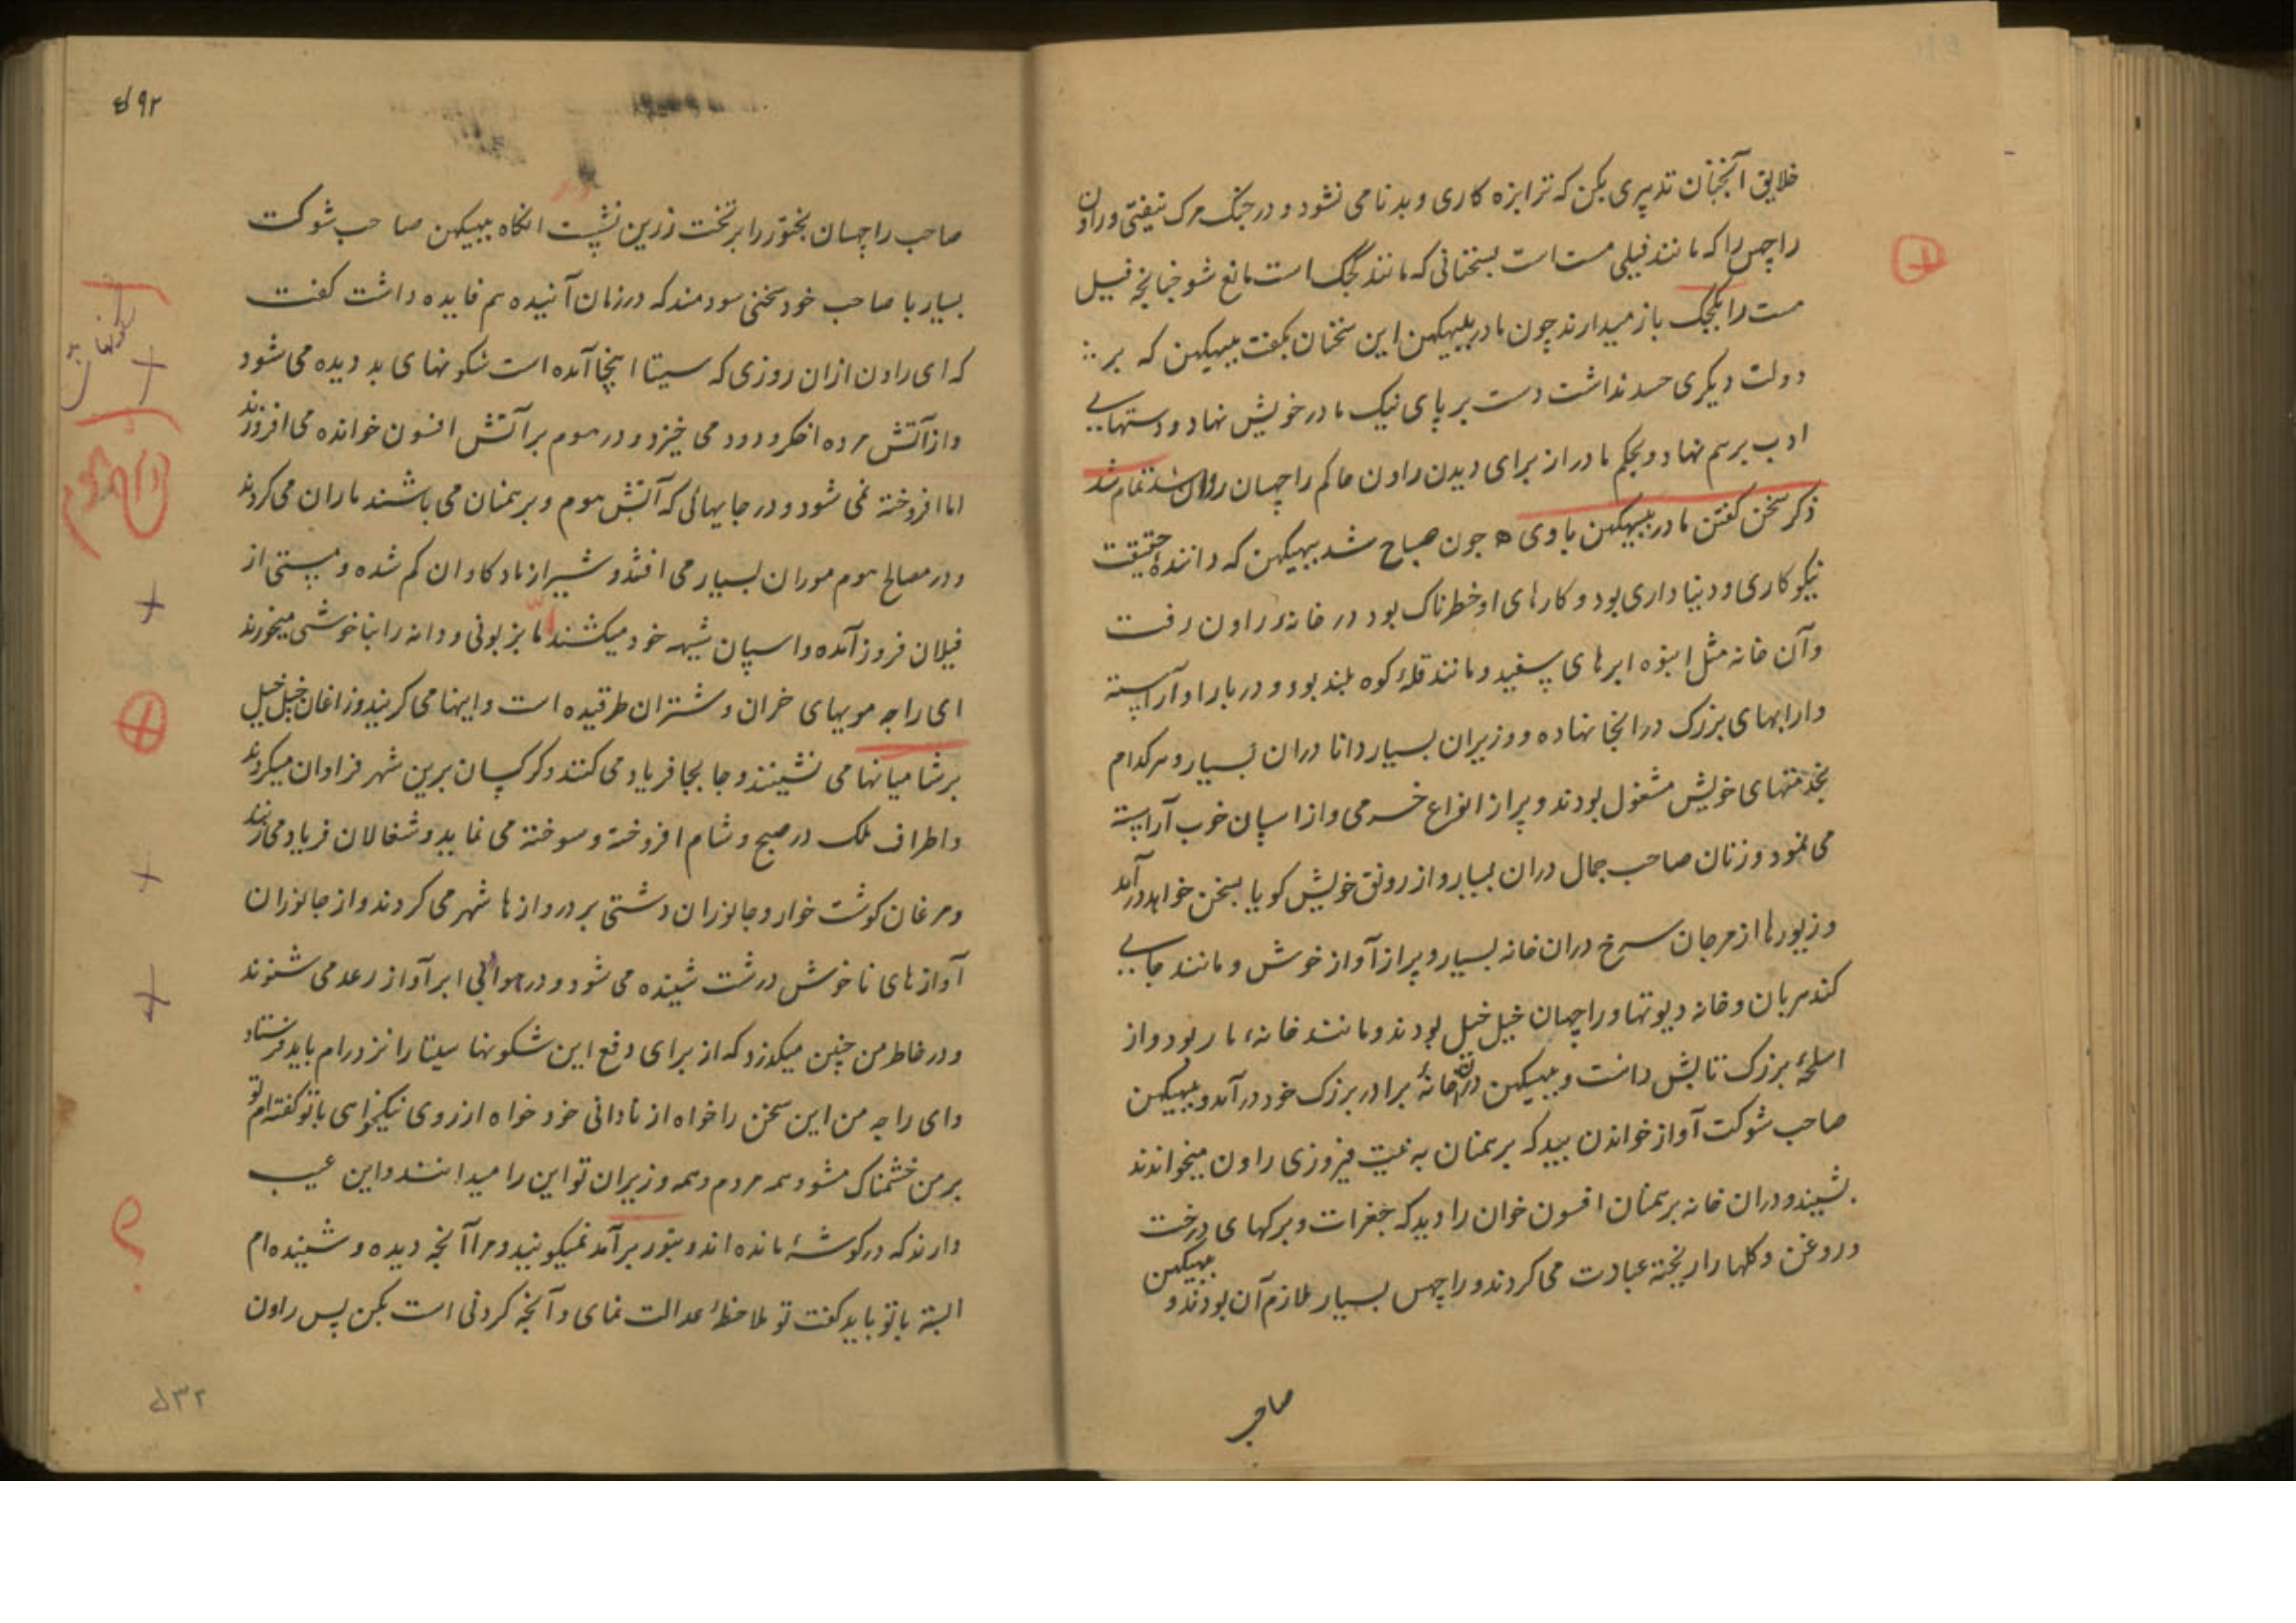 خلایق آنچنان تدبیری بکن که ترا بزه کاری و بدنامی نشود و در جنک مرک نیفتی و راون
راچهس را که مانند فیلی مست است بسختانی که مانند کجک است مانع شو چنانچه فیل
مست را بکجک باز میدارند چون مادر ببیهیکهن این سخنان بکفت ببیهیکهن که بر
دولت دیکری حسد نداشت دست بر پای نیک مادر خویش نهاد و دستهایی
ادب برهم نهاد و بحکم مادر از برای دیدن راون حاکم راچهسان روان شد تمام شد
ذکر سخن کفتن مادر ببیهیکهن باوی ه چون صباح شد ببیهیکهن که دانندهٔ حقیقت
نیکو کاری و دنیاداری بود و کارهای او خطرناک بود در خانهٔ راون رفت
وآن خانه مثل انبوه ابرهای سفید و مانند قلهٔ کوه بلند بود و دربار او آراسته
وارابهای بزرک در انجا نهاده و وزیران بسیار دانا دران بسیار و هر کدام
بخدمتهای خویش مشغول بودند و پر از انواع خرمی و از اسپان خوب آراسته
می نمود و زنان صاحب جمال دران بسیار و از رونق خویش کویا بسخن خواهد درآمد
و زیورها از مرجان سرخ دران خانه بسیار و پر از آواز خوش و مانند جایی
کندهربان و خانه دیوتها و راچهسان خیل خیل بودند و مانند خانهٔ مار بود و از
اسلحهٔ بزرک تابش داشت و ببیهیکهن دران خانهٔ برادر بزرک خود درآمد و ببیهیکهن
صاحب شوکت آواز خواندن بید که برهمنان به نیت فیروزی راون میخواندند
بشنید و دران خانه برهمنان افسون خوان را دید که جغرات و برکهای درخت
و روغن و کلها را ریخته عبادت می کردند و راچهس بسیار ملازم آن بودند و ببیهیکهن
صاحب
۵۹۲
صاحب راچهسان بختور را بر تخت زرین نشست انکاه ببیهیکهن صاحب شوکت
بسیار با صاحب خود سخنی سودمند که در زمان آینده هم فایده داشت کفت
که ای راون ازان روزی که سیتا اینجا آمده است شکونهای بد دیده می شود
و از آتش مرده اخکر و دود می خیزد و در هوم بر آتش افسون خوانده می افروزند
اما افروخته نمی شود و در جایهائی که آتش هوم و برهمنان می باشند ماران می کردند
و در مصالح هوم موران بسیار می افتند و شیر از ماد کاوان کم شده و مستی از
فیلان فروز آمده و اسپان شیهه خود میکشند اما بزبونی و دانه را بناخوشی میخورند
ای راجه مویهای خران و شتران طرقیده است و اینها می کریند و زاغان خیل خیل
بر شامیانها می نشینند و جا بجا فریاد می کنند و کرکسان برین شهر فراوان میکردند
و اطراف ملک در صبح و شام افروخته و سوخته می نماید و شغالان فریاد می زنند
و مرغان کوشت خوار و جانوران دشتی بر دروازها شهر می کردند و از جانوران
آوازهای ناخوش درشت شنیده می شود و در هوای بی ابر آواز رعد می شنوند
و در خاطر من چنین میکذرد که از برای دفع این شکونها سیتا را نزد رام باید فرستاد
وای راجه من این سخن را خواه از نادانی خود خواه از روی نیکخواهی باتو کفته ام تو
بر من خشمناک مشو و همه مردم و همه وزیران تو این را میدانند و این عیب
دارند که در کوشهٔ مانده اند و بتو بر آمد نمیکویند و مرا آنچه دیده و شنیده ام
البته باتو باید کفت تو ملاحظهٔ عدالت نمای و آنچه کردنی است بکن پس راون
۵۳۲